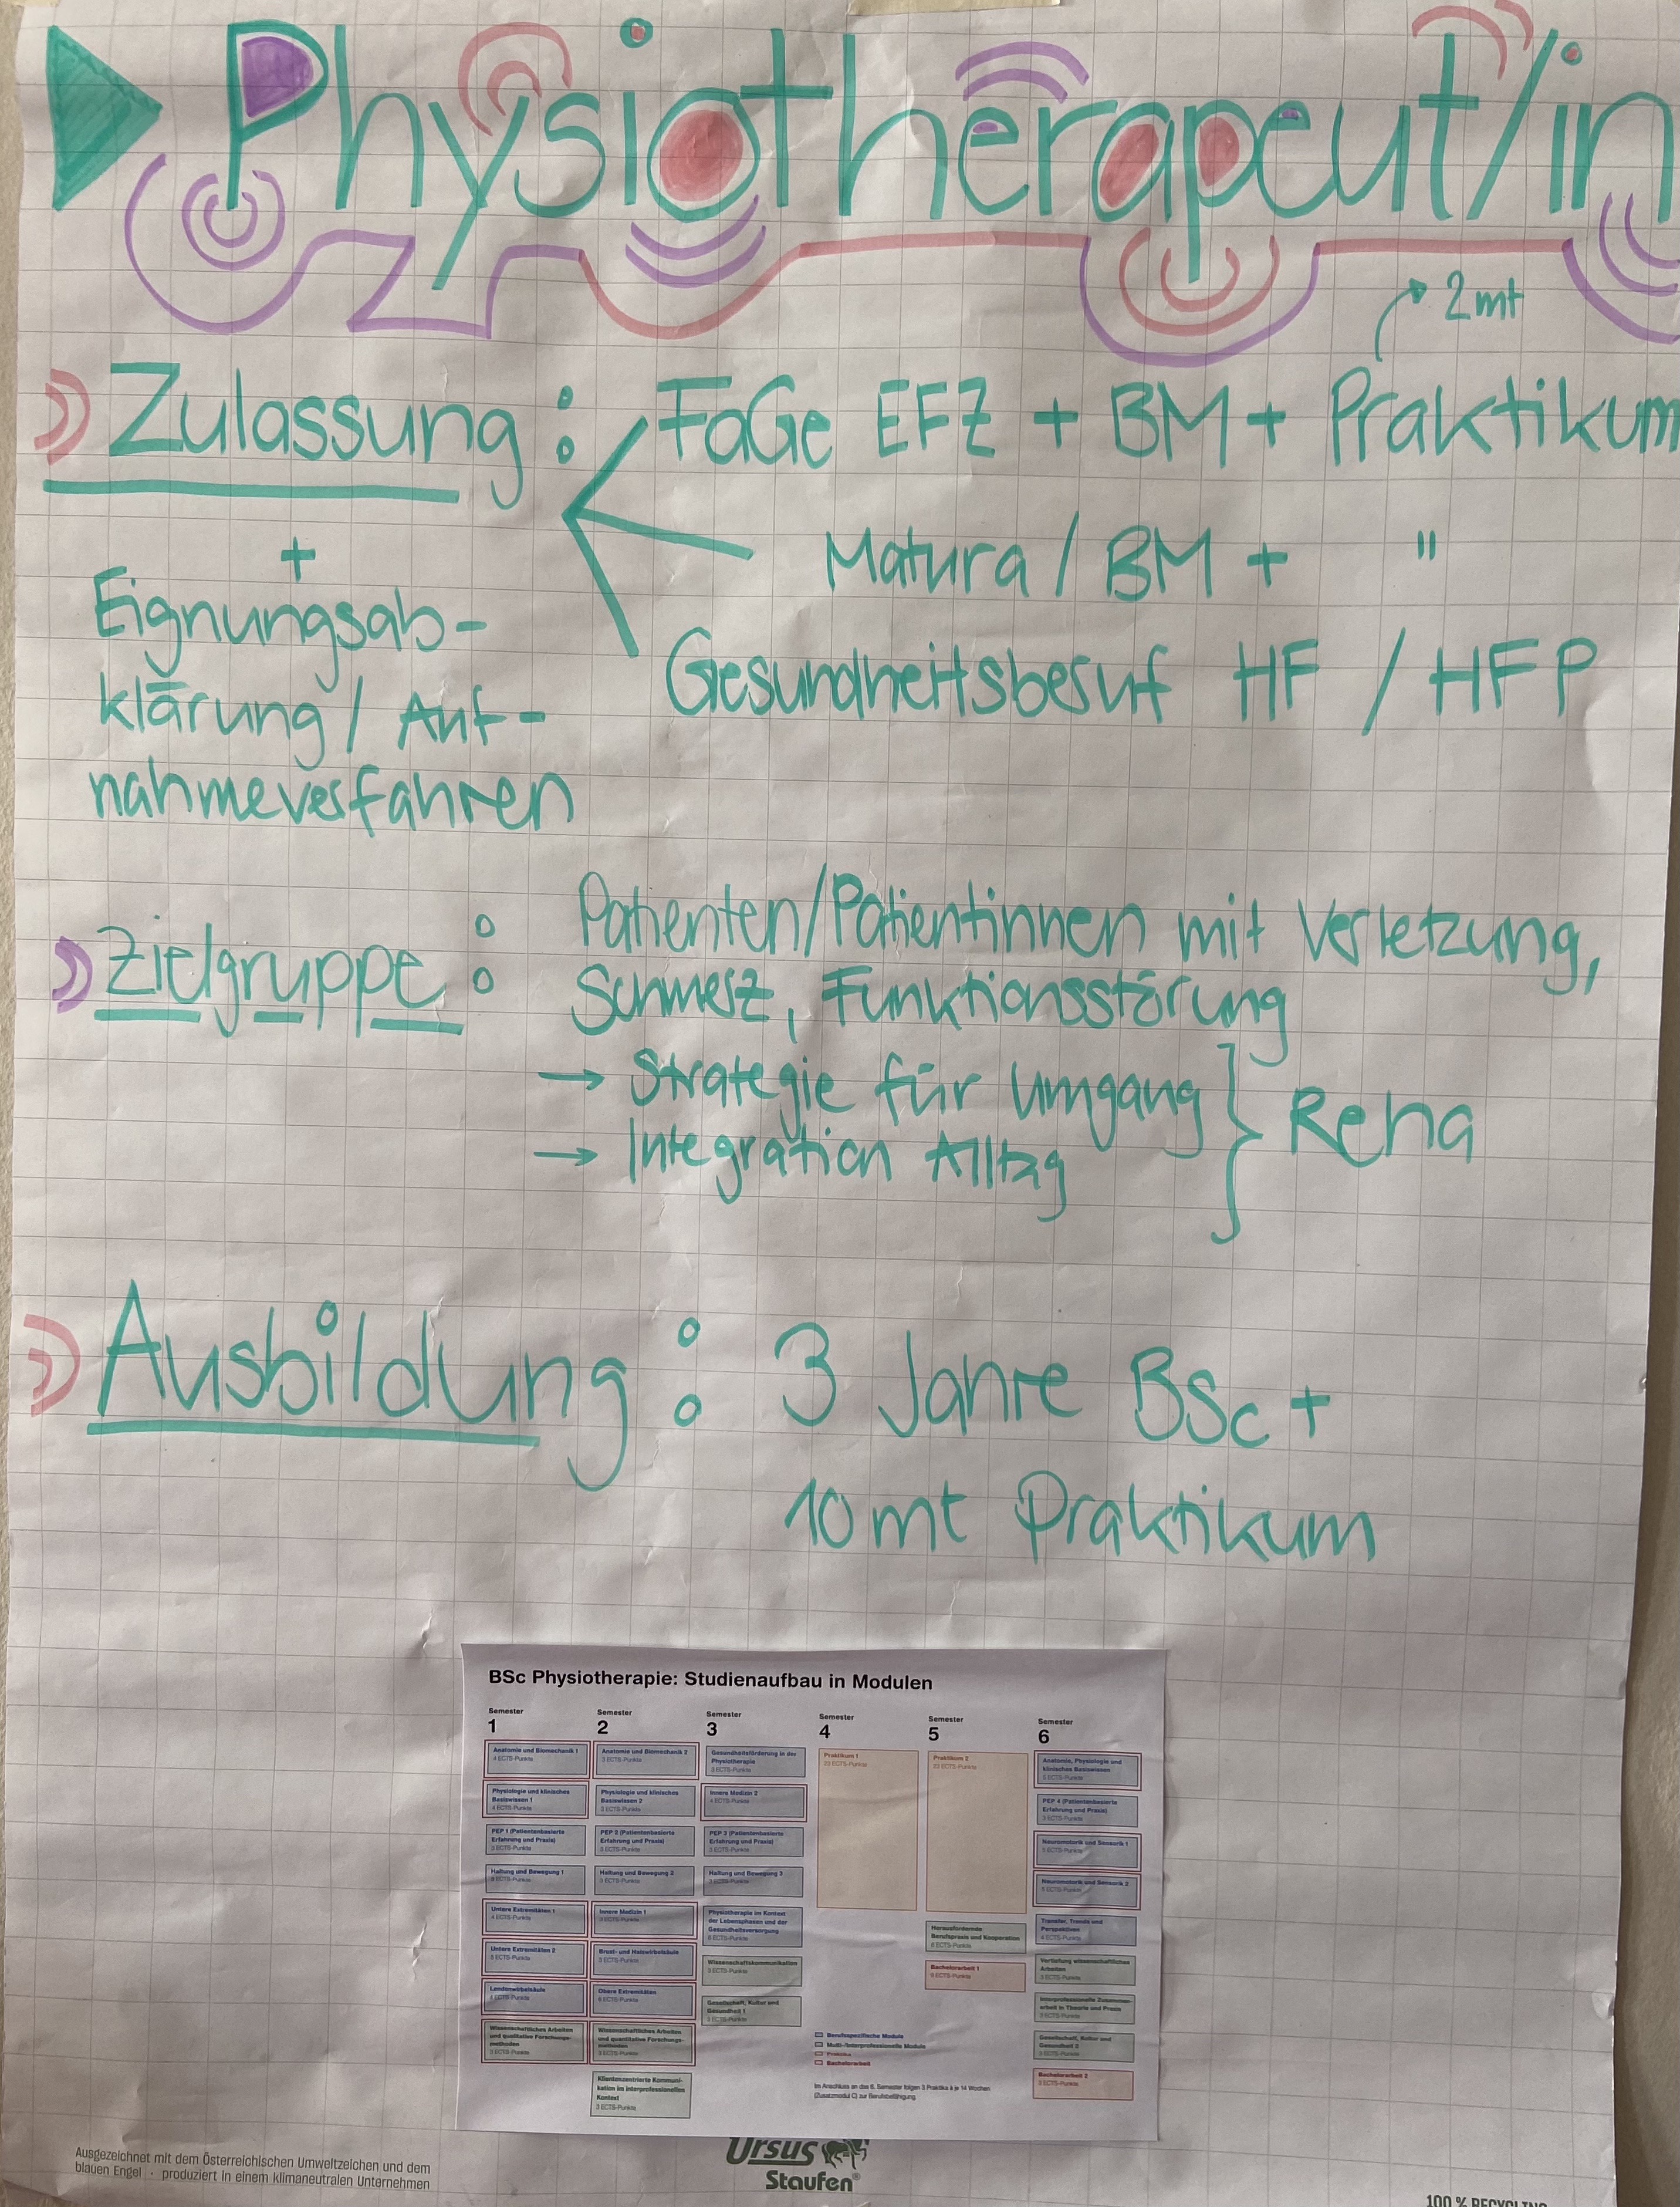 Physiotherapeut/in
2mt
Zulassung: FaGe EFZ + BM + Praktikum
Matura / BM + "
Gesundheitsberuf HF / HFP
+
Eignungsab-
klärung / Auf-
nahmeverfahren
Zielgruppe: Patienten/Patientinnen mit Verletzung,
Schmerz, Funktionsstörung
→ Strategie für Umgang
→ Integration Alltag
} Reha
Ausbildung: 3 Jahre BSc +
10 mt Praktikum
BSc Physiotherapie: Studienaufbau in Modulen
Semester
1
Anatomie und Biomechanik 1
4 ECTS-Punkte
Physiologie und klinisches
Basiswissen 1
4 ECTS-Punkte
PEP 1 (Patientenbasierte
Erfahrung und Praxis)
3 ECTS-Punkte
Haltung und Bewegung 1
ECTS-Punkte
Untere Extremitäten 1
4 ECTS-Punkte
Untere Extremitäten 2
ECTS-Punkte
Lendenwirbelsäule
ECTS-Punkte
Wissenschaftliches Arbeiten
und qualitative Forschungs-
methoden
3 ECTS-Punkte
Semester
2
Anatomie und Biomechanik 2
3 ECTS-Punkte
Physiologie und klinisches
Basiswissen 2
3 ECTS-Punkte
PEP 2 (Patientenbasierte
Erfahrung und Praxis)
3 ECTS-Punkte
Haltung und Bewegung 2
3 ECTS-Punkte
Innere Medizin 1
ECTS-Punkte
Brust- und Halswirbelsäule
ECTS-Punkte
Obere Extremitäten
ECTS-Punkte
Wissenschaftliches Arbeiten
und quantitative Forschungs-
methoden
3 ECTS-Punkte
Klientenzentrierte Kommuni-
kation im interprofessionellen
Kontext
3 ECTS-Punkte
Semester
3
Gesundheitsförderung in der
Physiotherapie
3 ECTS-Punkte
Innere Medizin 2
4 ECTS-Punkte
PEP 3 (Patientenbasierte
Erfahrung und Praxis)
3 ECTS-Punkte
Haltung und Bewegung 3
3 ECTS-Punkte
Physiotherapie im Kontext
der Lebensphasen und der
Gesundheitsversorgung
ECTS-Punkte
Wissenschaftskommunikation
3 ECTS-Punkte
Gesellschaft, Kultur und
Gesundheit 1
3 ECTS-Punkte
Semester
4
Praktikum 1
23 ECTS-Punkte
Semester
5
Praktikum 2
23 ECTS-Punkte
Herausfordernde
Berufspraxis und Kooperation
ECTS-Punkte
Bachelorarbeit 1
ECTS-Punkte
Semester
6
Anatomie, Physiologie und
klinisches Basiswissen
ECTS-Punkte
PEP 4 (Patientenbasierte
Erfahrung und Praxis)
3 ECTS-Punkte
Neuromotorik und Sensorik 1
ECTS-Punkte
Neuromotorik und Sensorik 2
ECTS-Punkte
Transfer, Trends und
Perspektiven
4 ECTS-Punkte
Vertiefung wissenschaftliches
Arbeiten
3 ECTS-Punkte
Interprofessionelle Zusammen-
arbeit in Theorie und Praxis
3 ECTS-Punkte
Gesellschaft, Kultur und
Gesundheit 2
3 ECTS-Punkte
Bachelorarbeit 2
ECTS-Punkte
Berufsspezifische Module
Multi-/Interprofessionelle Module
Praktika
Bachelorarbeit
Im Anschluss an das 6. Semester folgen 3 Praktika à je 14 Wochen
(Zusatzmodul C) zur Berufsbefähigung.
Ausgezeichnet mit dem Österreichischen Umweltzeichen und dem
blauen Engel · produziert in einem klimaneutralen Unternehmen
Ursus
Staufen®
100 % RECYCLING